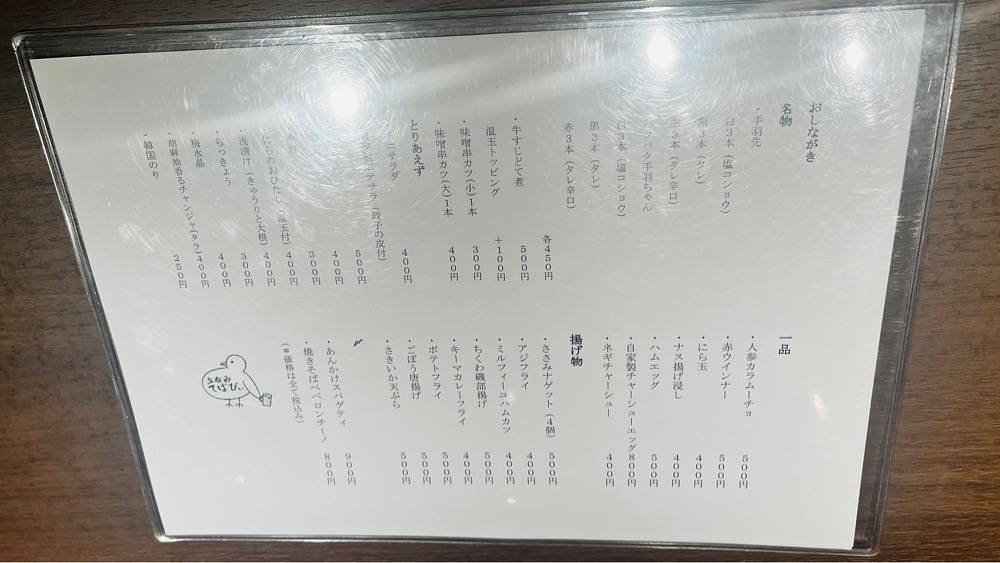 おしながき
名物
・手羽先
白３本（塩コショウ）
黒３本（タレ）
赤３本（タレ辛口）
手羽ちゃん
白３本（塩コショウ）
黒３本（タレ）
赤３本（タレ辛口）
各４５０円
・牛すじどて煮 ５００円
温玉トッピング ＋１００円
・味噌串カツ（小）１本 ３００円
・味噌串カツ（大）１本 ４００円
とりあえず
ニサラダ ４００円
テサラ（餃子の皮付） ５００円
４００円
３００円
にらのおひたし（温玉付） ４００円
・浅漬け（きゅうりと大根） ４００円
・らっきょう ３００円
・梅水晶 ４００円
・胡麻油香るチャンジャ（タラ） ４００円
・韓国のり ２５０円
一品
・人参カラムーチョ ５００円
・赤ウインナー ５００円
・にら玉 ４００円
・ナス揚げ浸し ４００円
・ハムエッグ ５００円
・自家製チャーシューエッグ ８００円
・ネギチャーシュー ４００円
揚げ物
・ささみナゲット（４個） ５００円
・アジフライ ４００円
・ミルフィーユハムカツ ４００円
・ちくわ磯部揚げ ５００円
・キーマカレーフライ ４００円
・ポテトフライ ５００円
・ごぼう唐揚げ ５００円
・さきいか天ぷら ５００円
〆
・あんかけスパゲティ ９００円
・焼きそばペペロンチーノ ８００円
（＊価格は全て税込み）
うなみ
てばびぃ